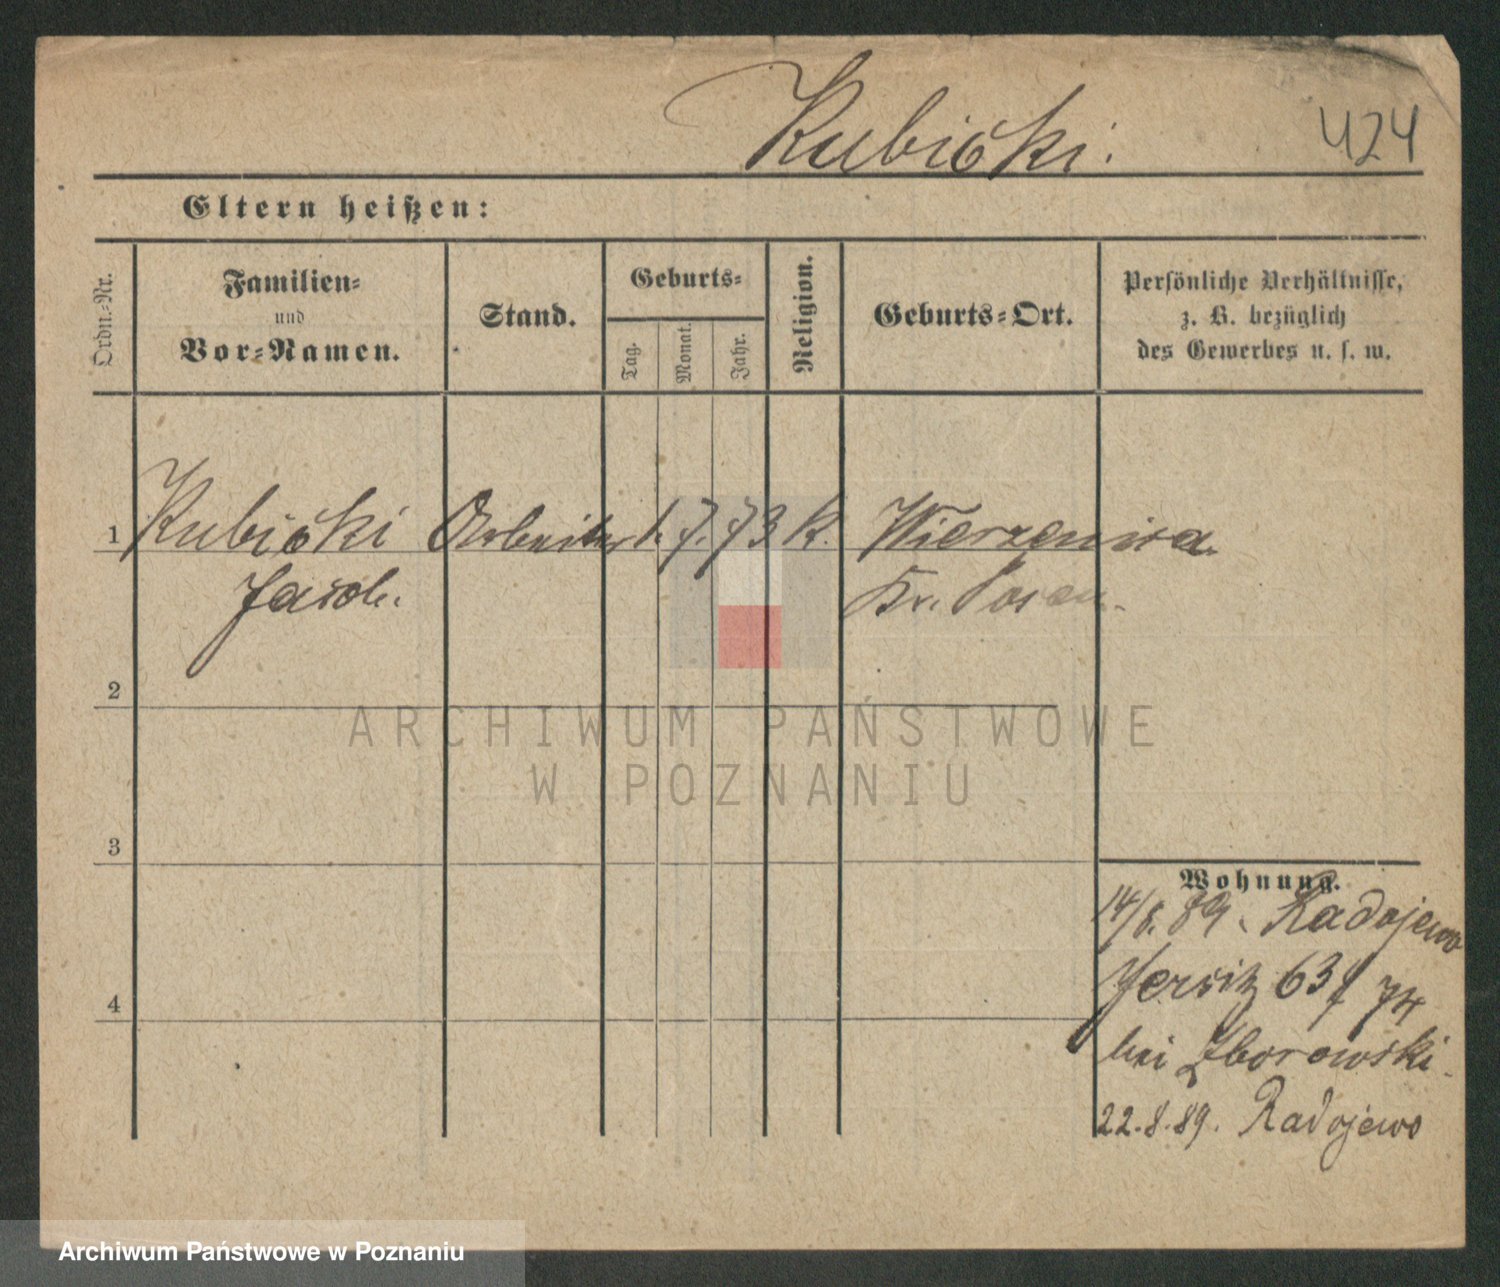 Kubicki.
424
Eltern heißen:
Ordn.-Nr.
Familien-
und
Vor-Namen.
Stand.
Geburts-
Tag.
Monat.
Jahr.
Religion.
Geburts-Ort.
Persönliche Verhältnisse,
z. B. bezüglich
des Gewerbes u. s. w.
1 Kubicki Arbeiter 1. 7. 73 k. Wierzenica
Jacob. Kr. Posen.
2
ARCHIWUM PAŃSTWOWE
W POZNANIU
3
Wohnung.
14/8. 89. Radojewo
Jersitz 63
4
bei Zborowski.
22.8.89. Radojewo
Archiwum Państwowe w Poznaniu